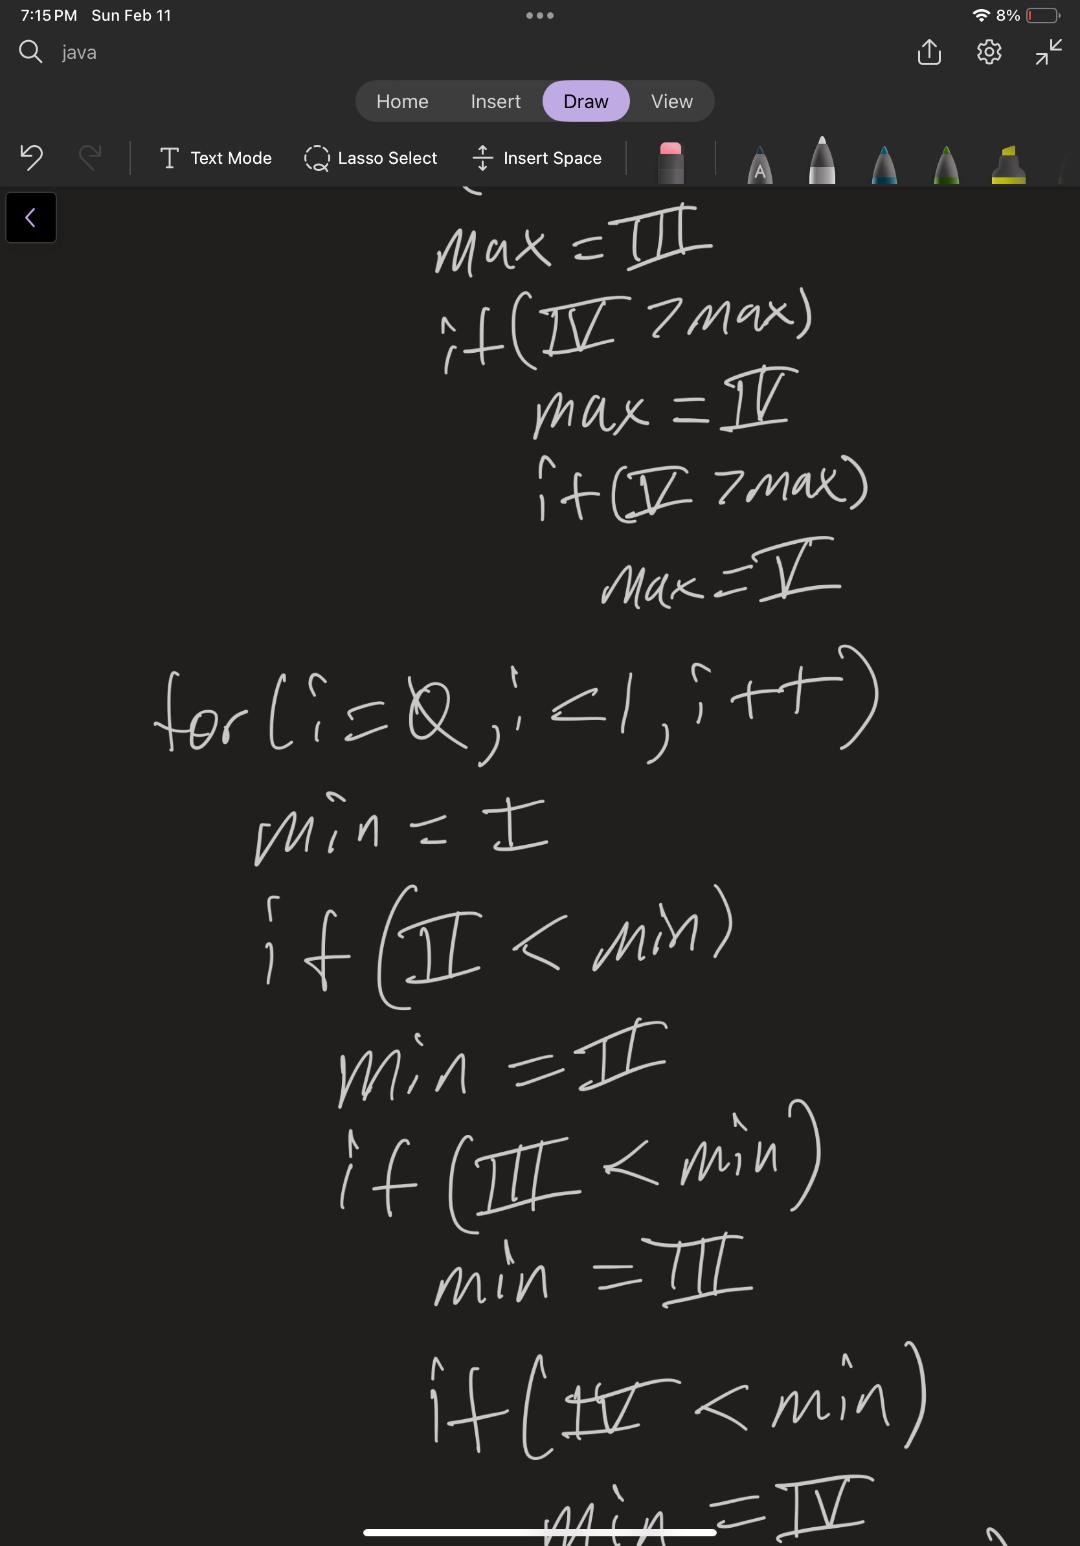 7:15 PM Sun Feb 11
8%
java
Home Insert Draw View
Text Mode Lasso Select Insert Space
A
max = III
if(IV > max)
max = IV
if(V > max)
max = V
for(i=0, i<1, i++)
min = I
if(II < min)
min = II
if(III < min)
min = III
if(IV < min)
min = IV